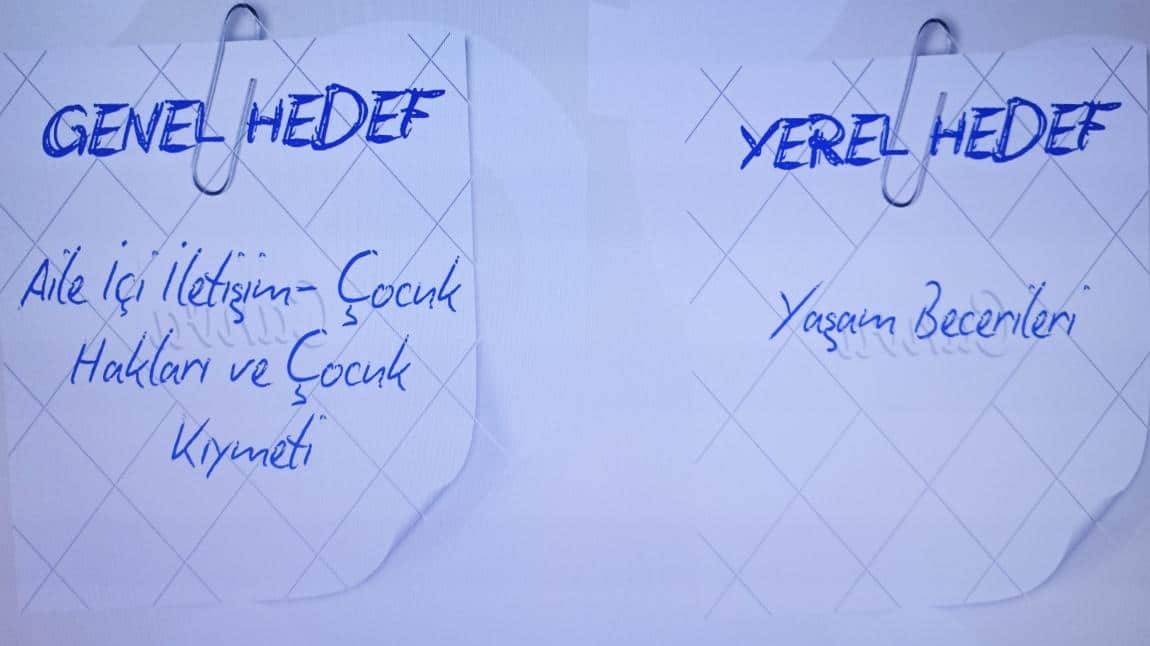 GENEL HEDEF
Aile İçi İletişim- Çocuk
Hakları ve Çocuk
Kıymeti
YEREL HEDEF
Yaşam Becerileri